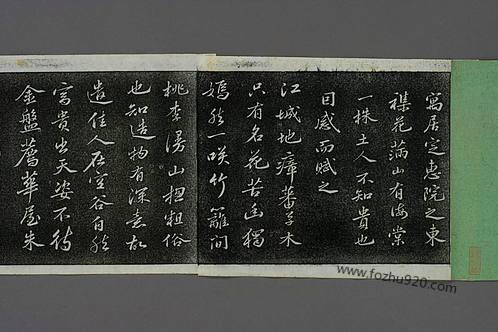 寓居定惠院之東
襍花滿山有海棠
一株土人不知貴也
因感而賦之
江城地瘴蕃草木
只有名花苦幽獨
嫣然一咲竹籬間
桃李漫山揔粗俗
也知造物有深意故
遣佳人在空谷自然
富貴出天姿不待
金盤薦華屋朱
www.fozhu920.com